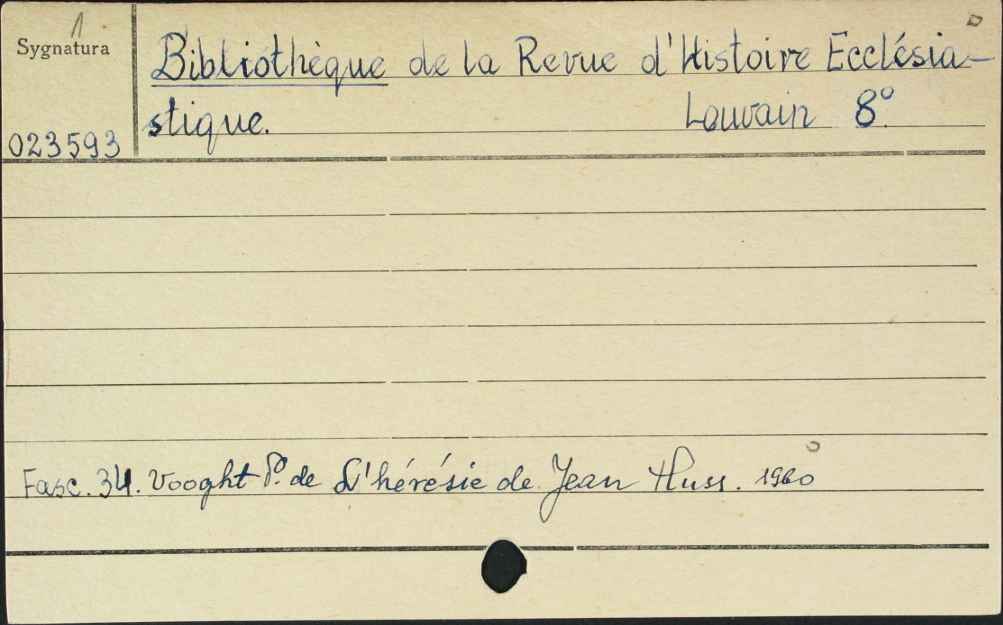 1
Sygnatura
Bibliothèque de la Revue d'Histoire Ecclésia-
stique. Louvain 8°
023593
Fasc. 34. Vooght P. de L'hérésie de Jean Huss. 1960